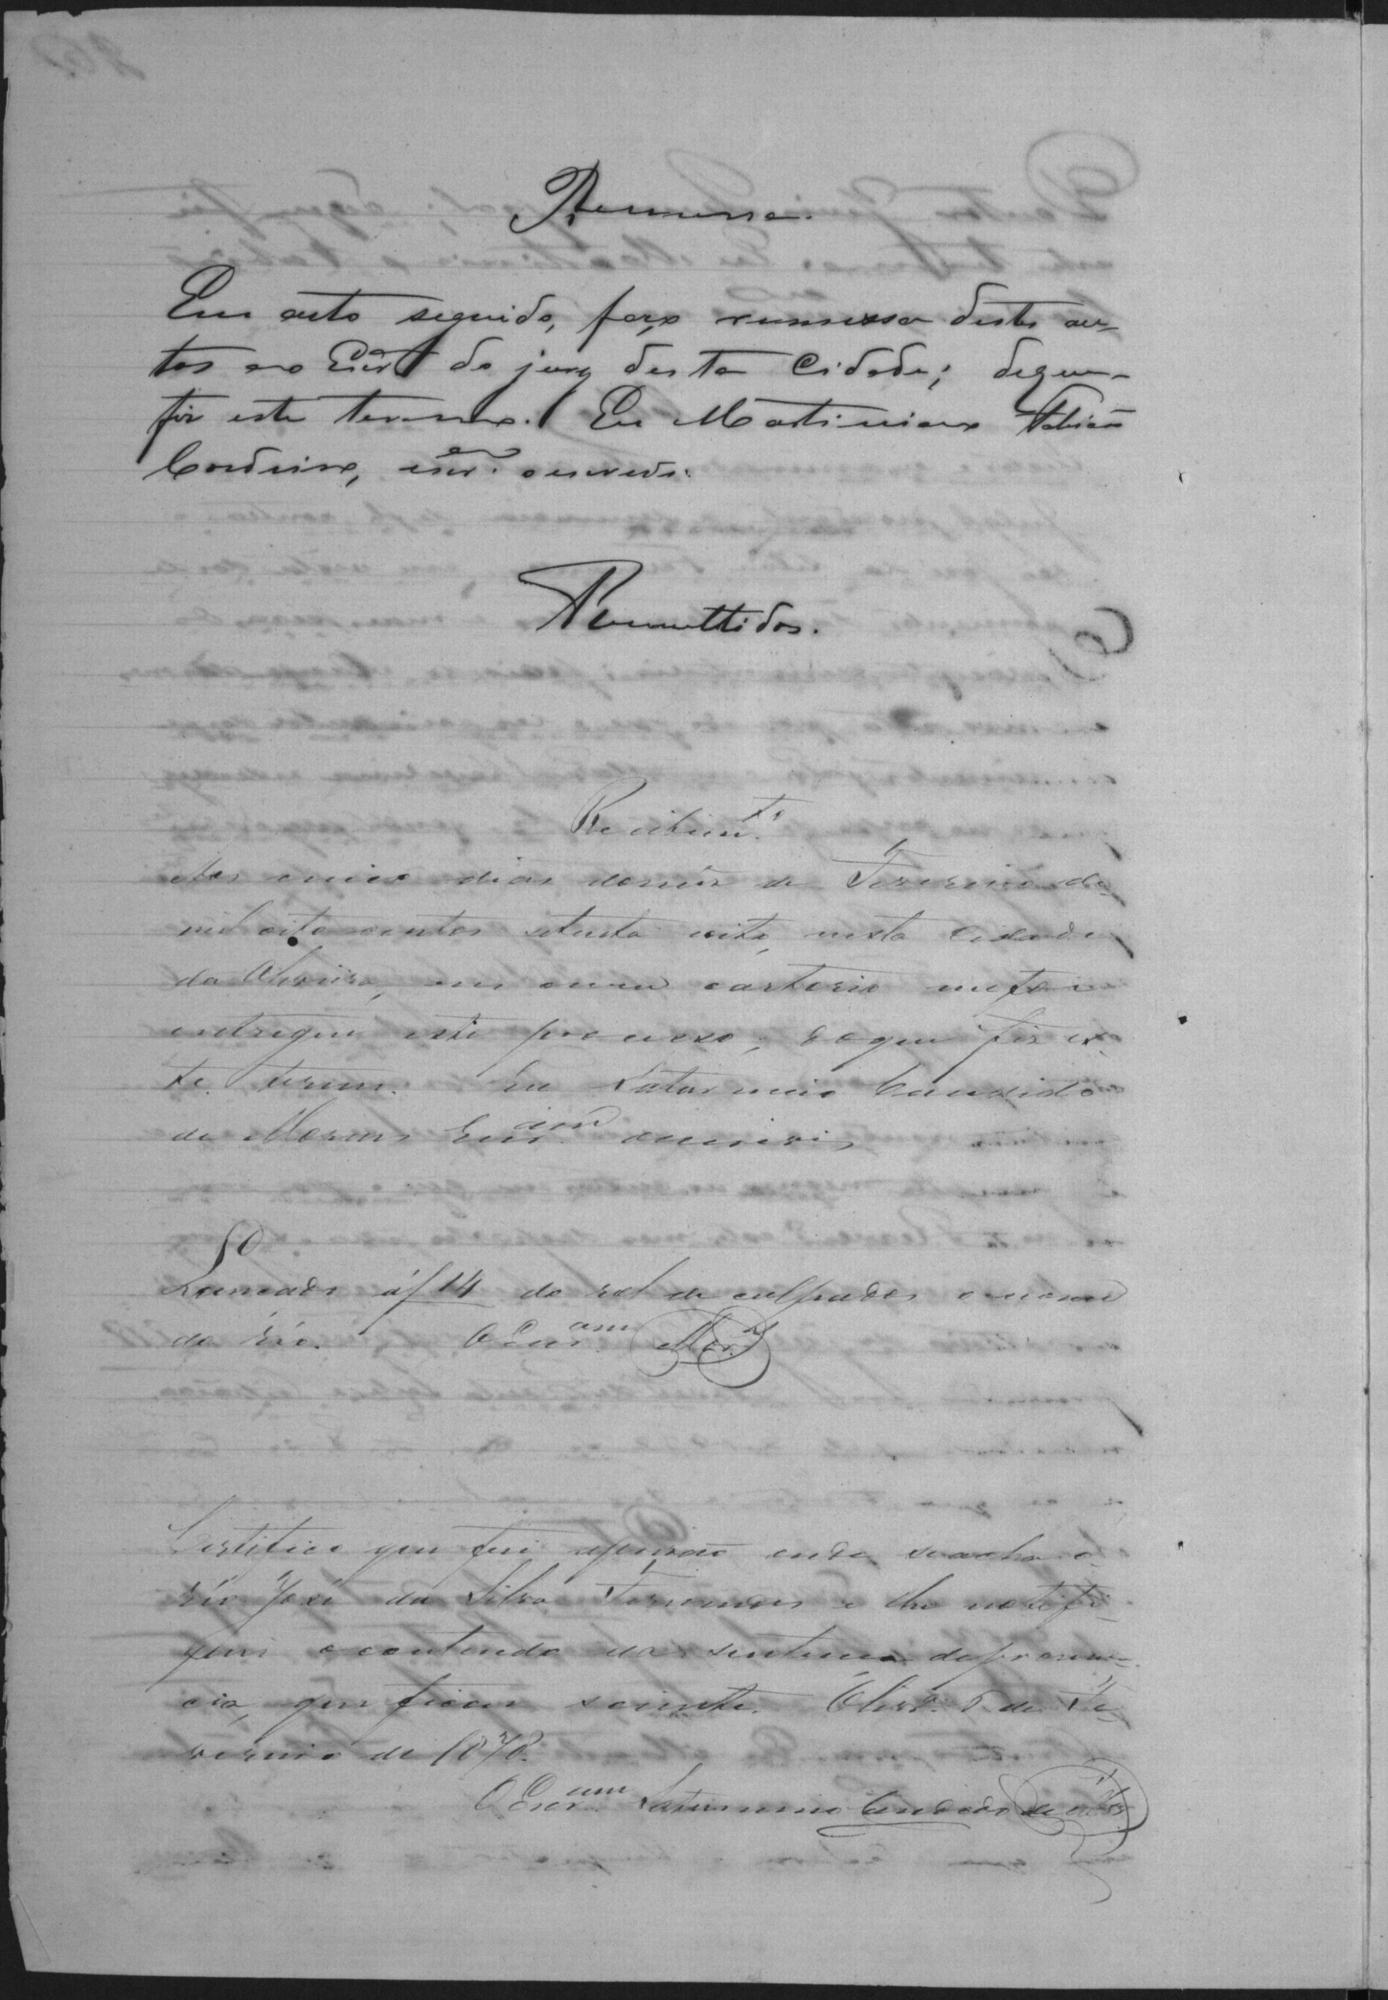 Remessa.
Em acto seguido, faço remessa destes au-
tos ao Escr.am do jury desta Cidade; do que
fiz este termo. Eu Martiniano Fabiano
Cordeiro, escr.am o escrevi.
Remettidos.
Recebim.to
Aos cinco dias do mês de Fevereiro de
mil oito centos setenta oito, nesta Cidade
da Oliveira, em meu cartorio me foi
entregue este processo, do que fiz es-
te termo. Eu Saturnino Candido
de Moraes Escr.am o escrevi
Lançado á f 14 do rol de culpados o nome
do réo. O Escr.am Mor.s
Certifico que fui a prisão onde se acha o
réo José da Silva e lhe notifi-
quei o contendo da sentença de pronun-
cia, que ficou sciente. Olivr.a 5 de Fe-
vereiro de 1878.
O Escr.am Saturnino Candido de Mor.s